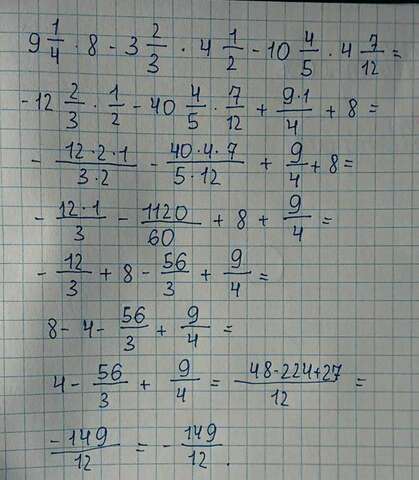 9 1/4 · 8 - 3 2/3 · 4 1/2 - 10 4/5 · 4 7/12 =
-12 2/3 · 1/2 - 40 4/5 · 7/12 + 9·1/4 + 8 =
- 12·2·1/3·2 - 40·4·7/5·12 + 9/4 + 8 =
- 12·1/3 - 1120/60 + 8 + 9/4 =
- 12/3 + 8 - 56/3 + 9/4 =
8 - 4 - 56/3 + 9/4 =
4 - 56/3 + 9/4 = 48-224+27/12 =
-149/12 = - 149/12.